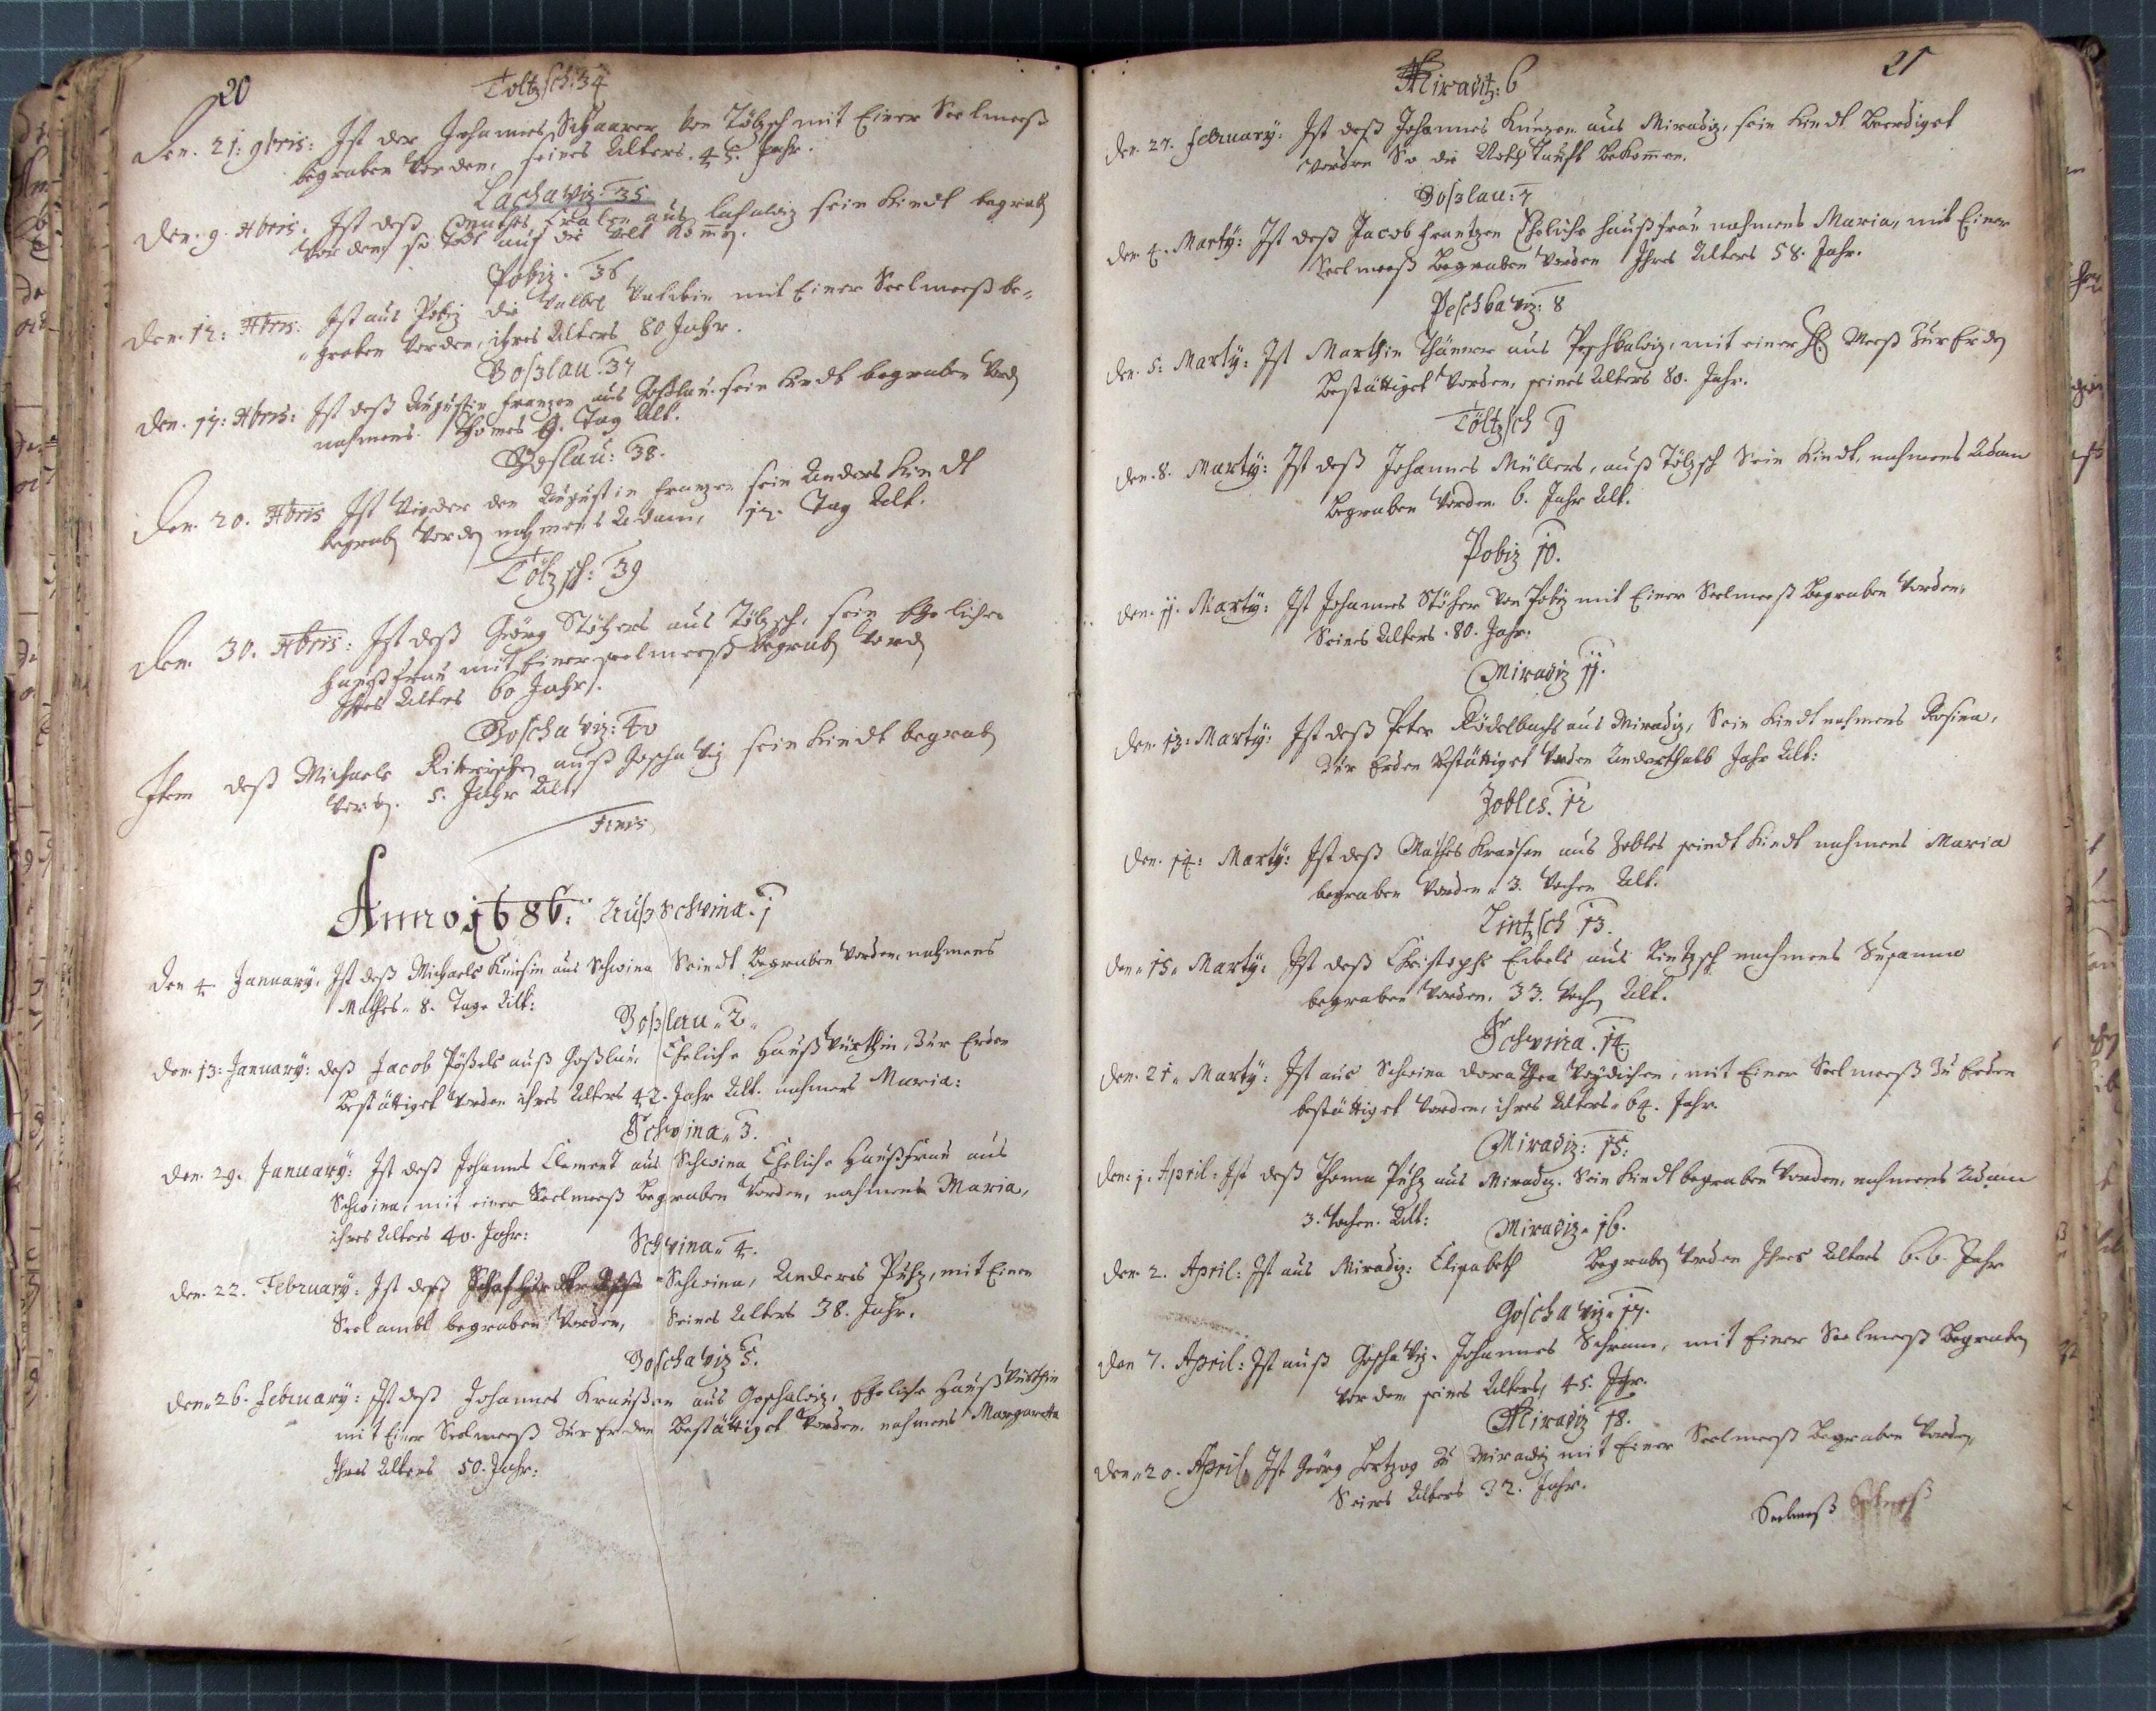 20
Toltzsch: 34
Den. 21: 9bris: Ist der Johannes Schaarer Von Töltzsch mit Einer Seelmeß
begraben Worden, seines Alters. 45. Jahr.
Lachawiz: 35
Den. 9. Xbris. Ist deß Mathes aus Lachawiz sein Kindt begrab
worden so Todt auf die Welt Kom̅.
Pobiz. 36
Den. 12: Xbris: Ist aus Pobiz die mit Einer Seelmeß be„
„graben Worden, ihres Alters 80 Jahr.
Goßlau: 37
Den. 17: Xbris: Ist deß Augustin Franzen aus Goßlau. sein Kindt begraben
nahmens Thomas 9. Tag Alt.
Goslau: 38.
Den. 20. Xbris Ist Wieder den Augustin Franzen sein Anders Kindt
begrab Word nahmens Adam, 12. Tag Alt.
Töltzsch: 39
Den. 30. Xbris: Ist deß Geörg Stözers aus Töltzsch, sein Eheliche
Haußfrau mit Einer seelmeß begrab Word
Ihres Alters 60 Jahr.
Goschawiz: 40
Item deß Michaels auß Goschawiz sein Kindt begrab
Word. 5. Jahr Alt
Finis
Anno 1686: Auß Schwina. 1
Den 4 January, Ist deß Michaels aus Schwina Seindt Begraben Worden nahmens
Mathes. 8. Tage Alt:
Goßlau „2„
Den. 13: January: deß Jacob Pößels auß Goßlau, Eheliche Haußwürthin, Zur Erden
Bestättiget Worden ihres Alters 42. Jahr Alt. nahmens Maria:
Schwina„ 3.
Den. 29. January: Ist deß Johannes Clement aus Schwina Eheliche Haußfrau aus
Schwina, mit einer Seelmeß Begraben Worden, nahmens Maria,
ihres Alters 40. Jahr:
Schwina„ 4.
Den. 22. February: Ist deß Schwina, Anderes Puhz, mit Einem
Seelambt begraben Worden, Seines Alters 38. Jahr.
Goschawiz 5.
Den„ 26. February: Ist deß Johannes Kraußen aus Goschawiz, Eheliche Haußwürthin
mit Einer Seelmeß Zur Erden Bestättiget Worden. nahmens Margaretha
Ihres Alters 50. Jahr:
21
Miraditz: 6
Den. 27. February: Ist deß Johannes Kunzen aus Miradiz, sein Kindt Beerdiget
Worden So die Noth Tauff Bekom̅en.
Goßlau: 7
Den 4. Marty: Ist deß Jacob Frantzen Eheliche Haußfrau nahmens Maria, mit Einer
Seelmeß Begraben Worden Ihres Alters 58. Jahr.
Peschbawiz: 8
Den. 5: Marty: Ist Marthin aus Peschbawiz, mit einer Meß Zur Erd
Bestättiget Worden, seines Alters 80. Jahr.
Töltzsch 9
Den. 8. Marty: Ist deß Johannes Müllers, auß Töltzsch Sein Kindt, nahmens Adam
Begraben Worden. 6. Jahr Alt.
Pobiz 10.
Den. 11. Marty: Ist Johannes Stöher von Pobiz mit Einer Seelmeß Begraben Worden,
Seines Alters. 80. Jahr.
Miradiz 11.
Den. 13: Marty: Ist deß Peter Rödelbachs aus Miradiz, Sein Kindt nahmens Rosina,
Zur Erden Bestättiget Worden Anderthalb Jahr Alt:
Zobles. 12
Den. 14: Marty: Ist deß Mathes Krausen aus Zobles seindt Kindt nahmens Maria
begraben Worden. 3. Wochen Alt.
Lintzsch 13.
Den„ 15„ Marty: Ist deß Christophs Enkels aus Lintzsch nahmens Susanna
begraben Worden. 33. Woch Alt.
Schwina. 14
Den. 21„ Marty: Ist aus Schwina Dorathea, mit Einer Seelmeß Zu Erden
bestättiget Worden, ihres Alters. 64. Jahr.
Miradiz: 15:
Den: 1. April: Ist deß Thoma Puhz aus Miradiz. Sein Kindt begraben Worden, nahmens Adam
3. Wochen. Alt:
Miradiz„ 16.
Den 2. April: Ist aus Miradiz: Elisabeth Begrab Worden Ihres Alters 66. Jahr
Goschawiz„ 17.
Den 7. April: Ist auß Goschawiz. Johannes Schram, mit Einer Seelmeß Begrab
Worden seines Alters, 45. Jahr.
Miradiz 18.
Den„ 20. April Ist Geörg Hertzog Zu Miradiz mit Einer Seelmeß Begraben Worden
Seines Alters 32. Jahr.
Seelmeß